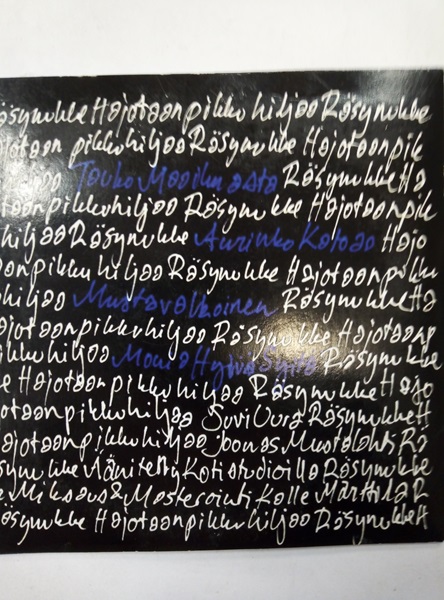 äsynukke Hajotaan pikku hiljaa Räsynukke
jotaan pikkuhiljaa Räsynukke Hajotaan pik
jaa Touko Maailmasta Räsynukke Ha
taan pikkuhiljaa Räsynukke Hajotaan pik
hiljaa Räsynukke Aurinko Katoaa Hajo
aan pikku hiljaa Räsynukke Hajotaan pikku
hiljaa Mustavalkoinen Räsynukke Ha
taan pikkuhiljaa Räsynukke Hajotaan p
kuhiljaa Monia Hyviä Syitä Räsynukke
e Hajotaan pikkuhiljaa Räsynukke Hajo
otaan pikkuhiljaa Suvi Uura Räsynukke H
ajotaan pikkuhiljaa Joonas Mustalahti Rä
synukke Äänitetty Kotistudioilla Räsynukke
e Miksaus & Masterointi Kalle Märttilä R
äsynukke Hajotaan pikkuhiljaa Räsynukke H